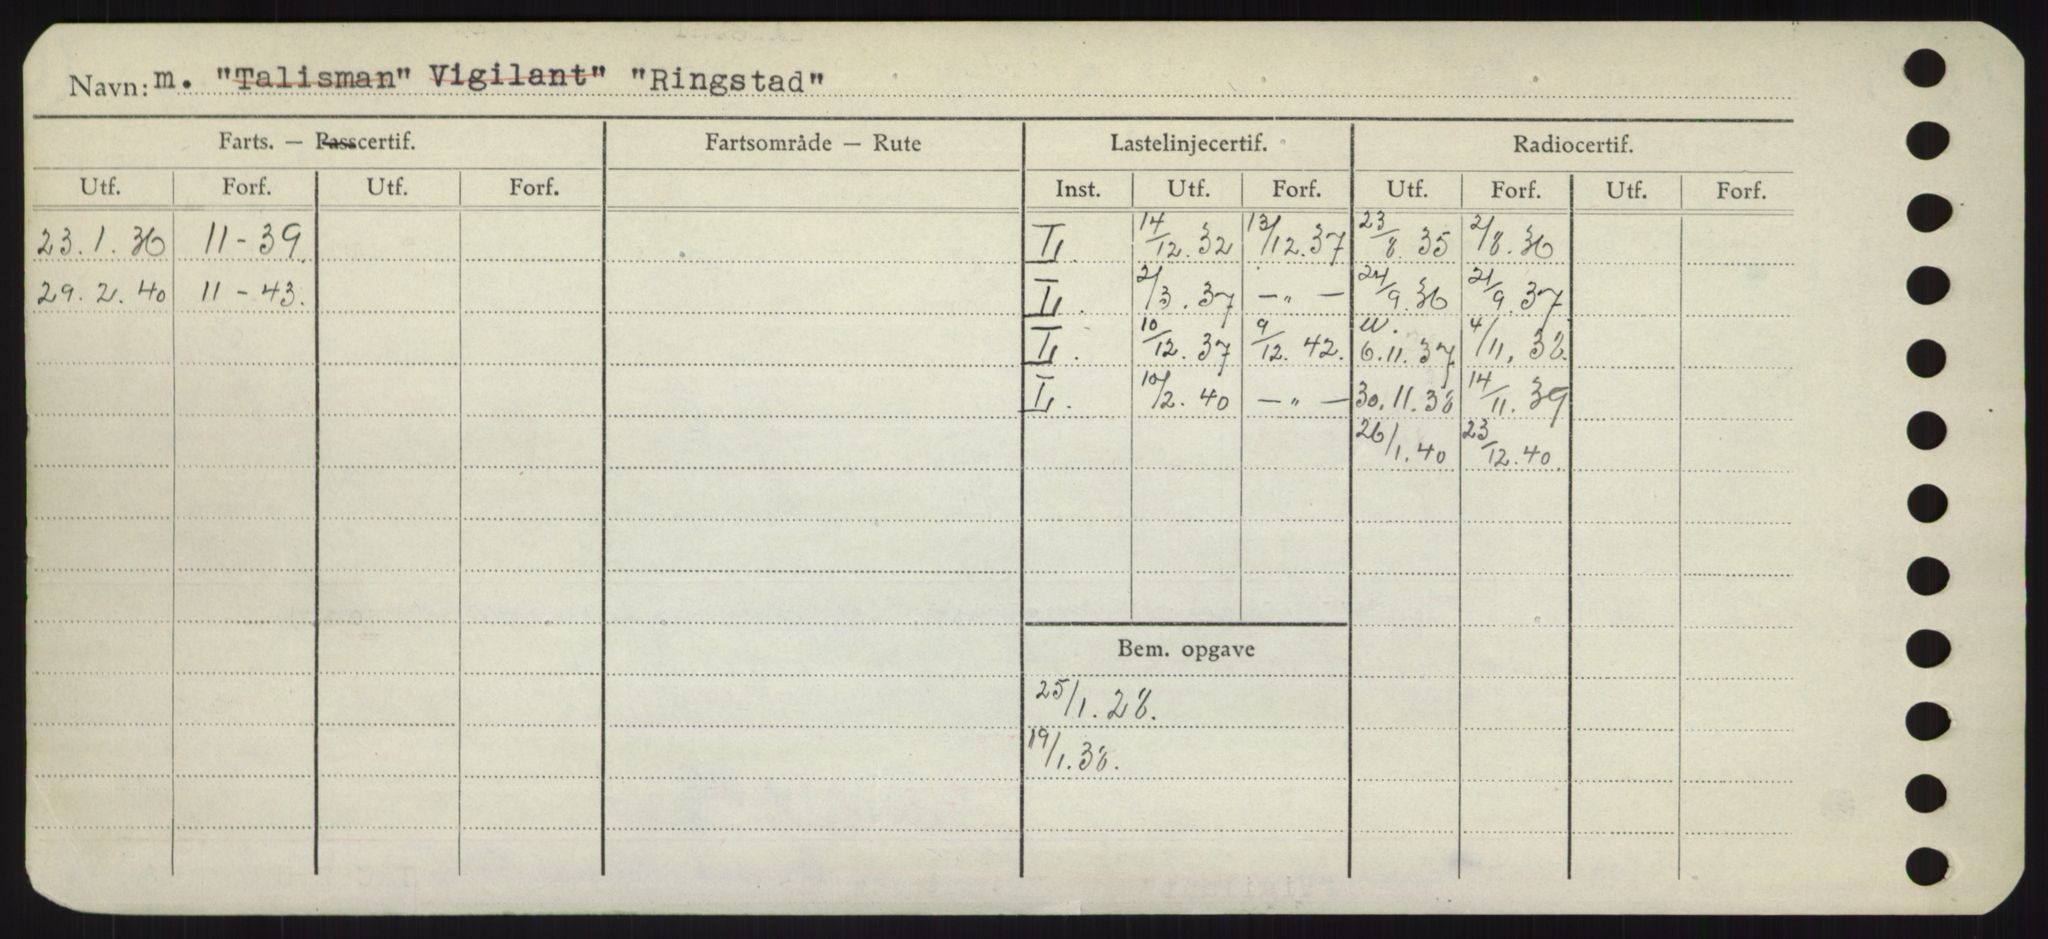 Navn: m. "Talisman" Vigilant" "Ringstad"
Farts. — Passcertif. Fartsområde — Rute Lastelinjecertif. Radiocertif.
Utf. Forf. Utf. Forf. Inst. Utf. Forf. Utf. Forf. Utf. Forf.
23.1.36 11-39. 14/12.32 13/12.37 23/8.35 2/8.36
29.2.40 11-43. 2/3.37 —„— 24/9.36 21/9.37
10/12.37 9/12.42. 6.11.37 4/11.38.
10/2.40 —„— 30.11.38 14/11.39
26/1.40 23/12.40.
Bem. opgave
25/1.28.
19/1.38.